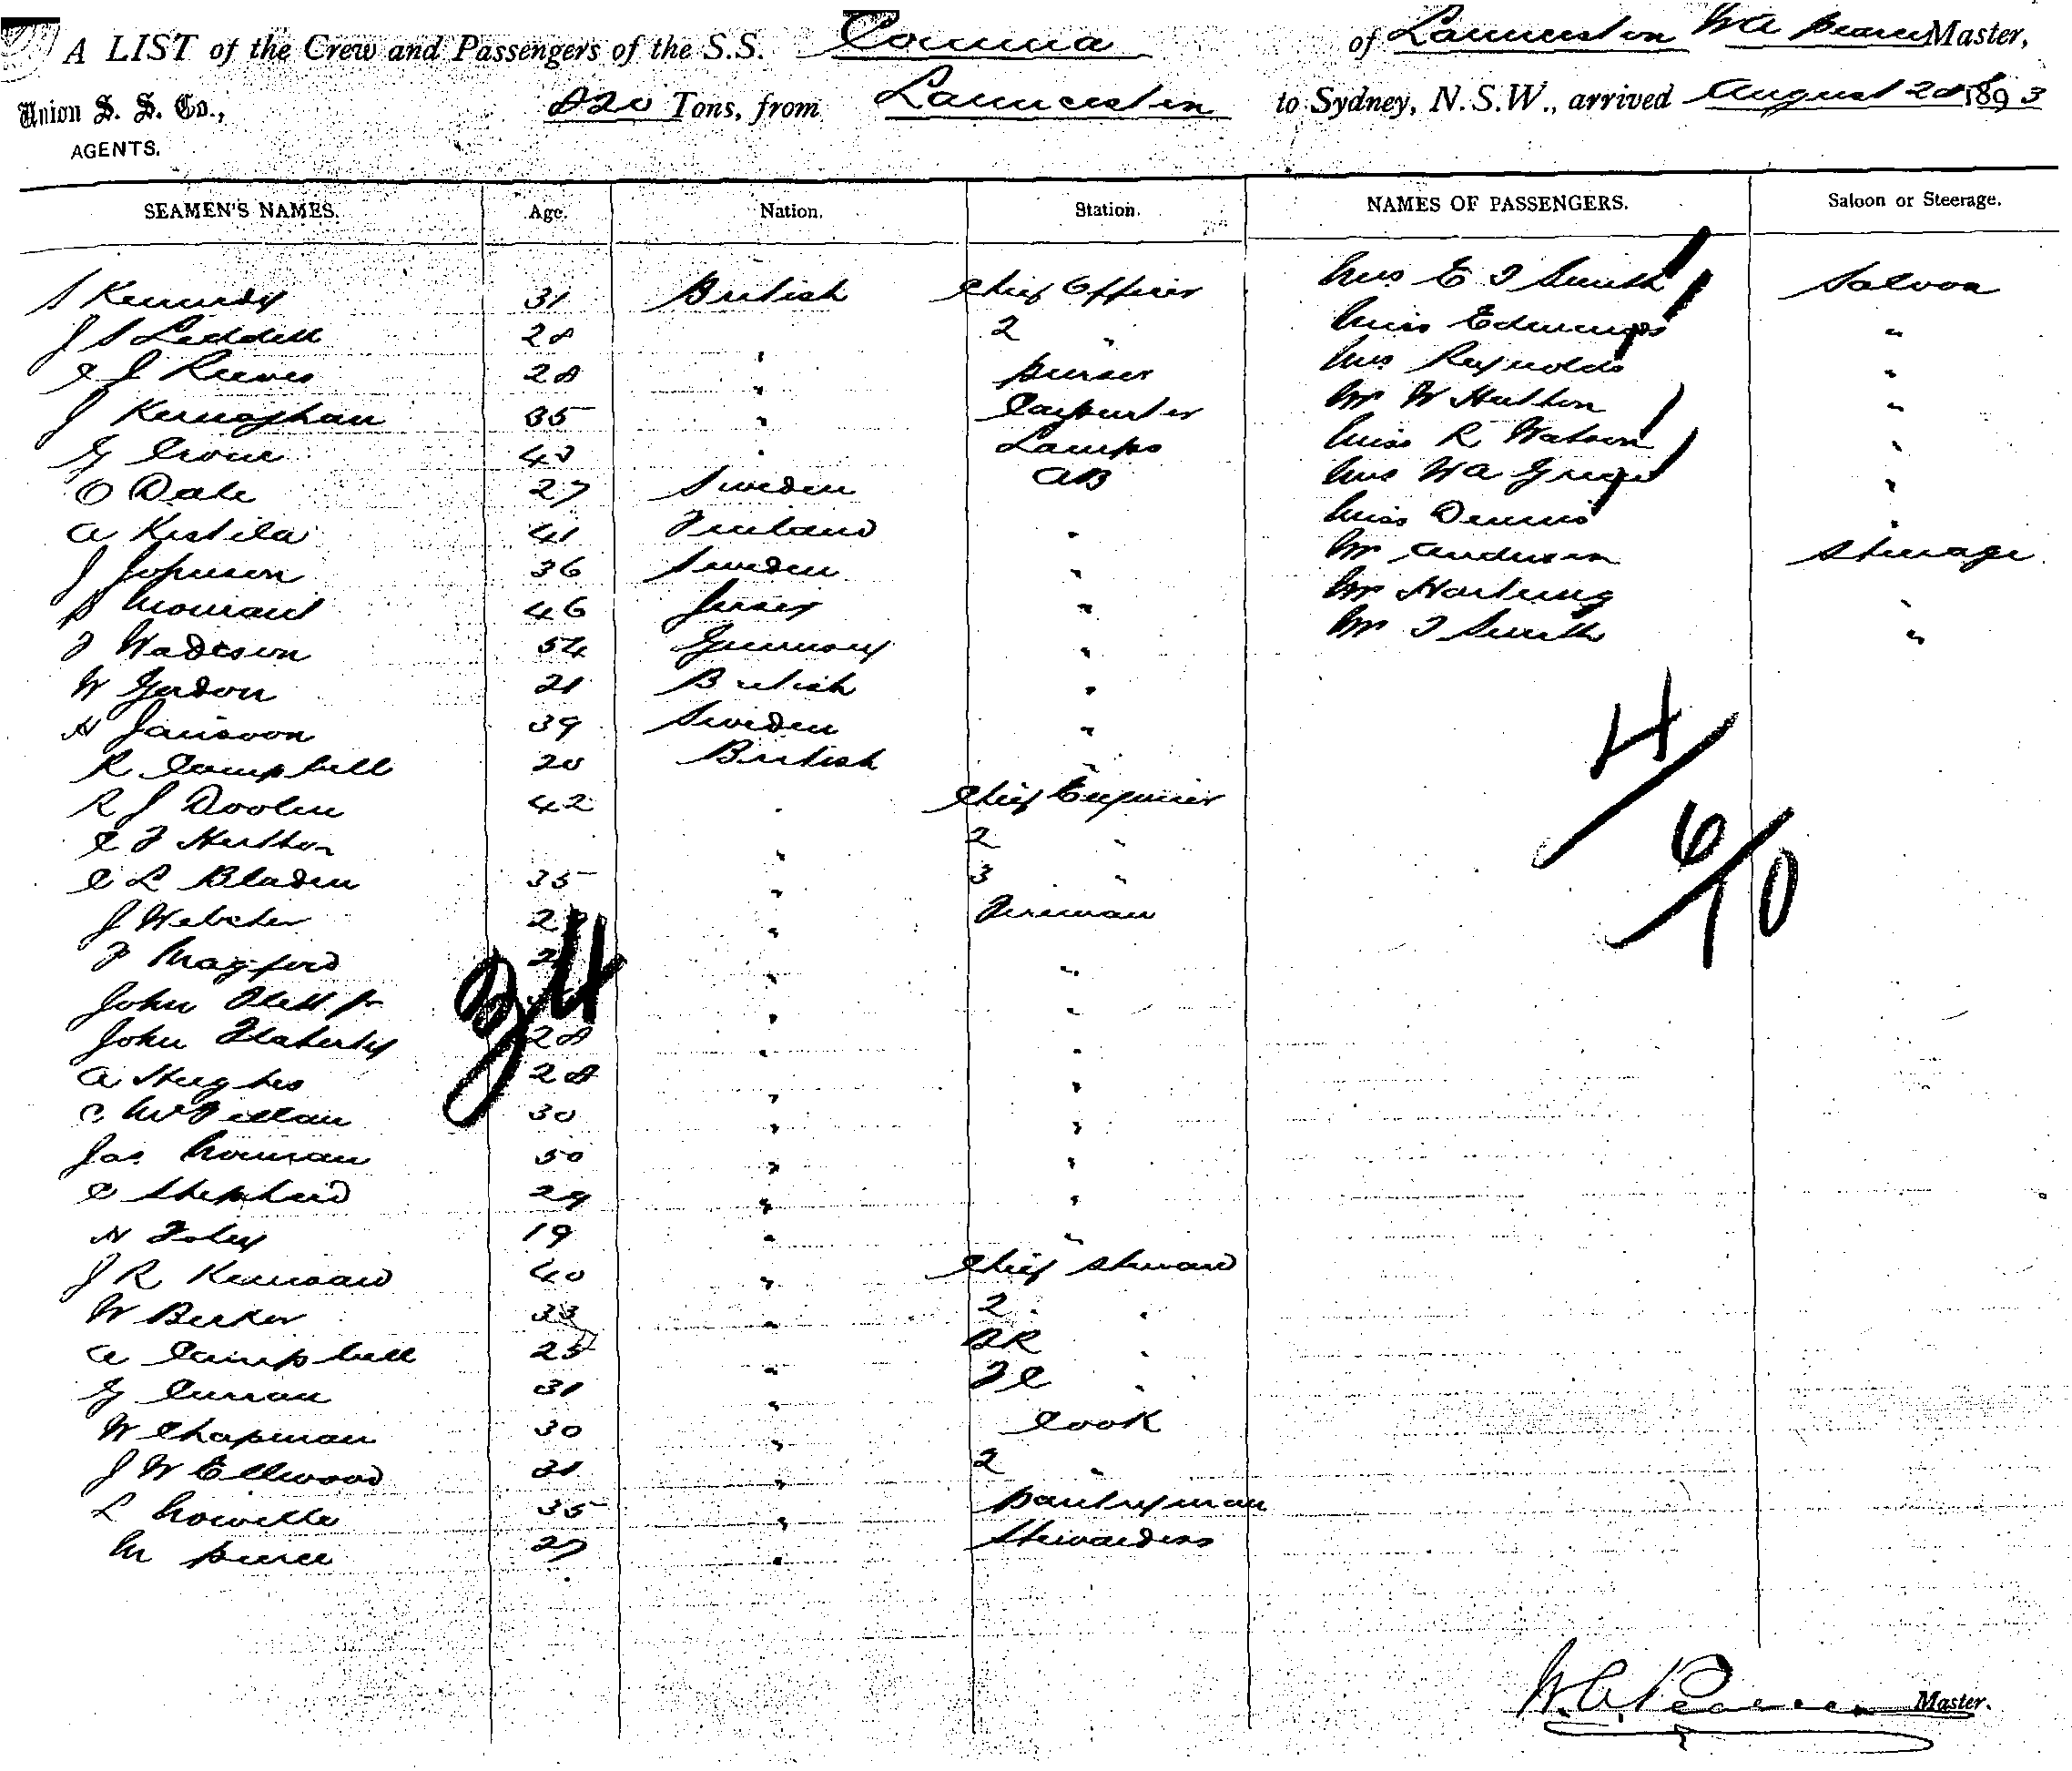 A LIST of the Crew and Passengers of the S.S. Corinna of Launceston W A Pearce Master,
Union S. S. Co., 820 Tons, from Launceston to Sydney, N.S.W., arrived August 28 1893
AGENTS.
SEAMEN'S NAMES. Age. Nation. Station. NAMES OF PASSENGERS. Saloon or Steerage.
S Kennedy 31 British Chief Officer Mrs E T Smith Saloon
J S Leddell 28 " 2 " Miss Edmunds "
C J Reeves 28 " Purser Mrs Reynolds "
J Kernaghan 35 " Carpenter Mr W Hutton "
G 43 " Lamps Miss R Watson "
O Dale 27 Sweden AB Mrs W A "
A Kistila 41 Finland " Miss Dennis "
J Johnson 36 Sweden " Mr Anderson Steerage
P Mourant 46 Jersey " Mr Hartung "
J Wadeson 54 Guernsey " Mr T Smith "
W Gordon 21 British "
H Jansson 39 Sweden "
R Campbell 20 British "
R J Doolen 42 " Chief Engineer
C F Hutton " 2 "
C L Bladen 35 " 3 "
J Webster " Fireman
F Magford " "
John Flett Jr " "
John Flaherty 28 " "
A Hughes 28 " "
C McLellan 30 " "
Jas Mounan 50 " "
C Shepherd 29 " "
H Foley 19 " "
J R Kennard 40 " Chief Steward
W Becker 33 " 2 "
A Campbell 25 " BR "
G Curran 31 " FC "
W Chapman 30 " Cook
J W Ellwood 31 " 2 "
L Nowelle 35 " Pantryman
M Pierce 27 " Stewardess
34
4
6
10
W. A. Pearce Master.